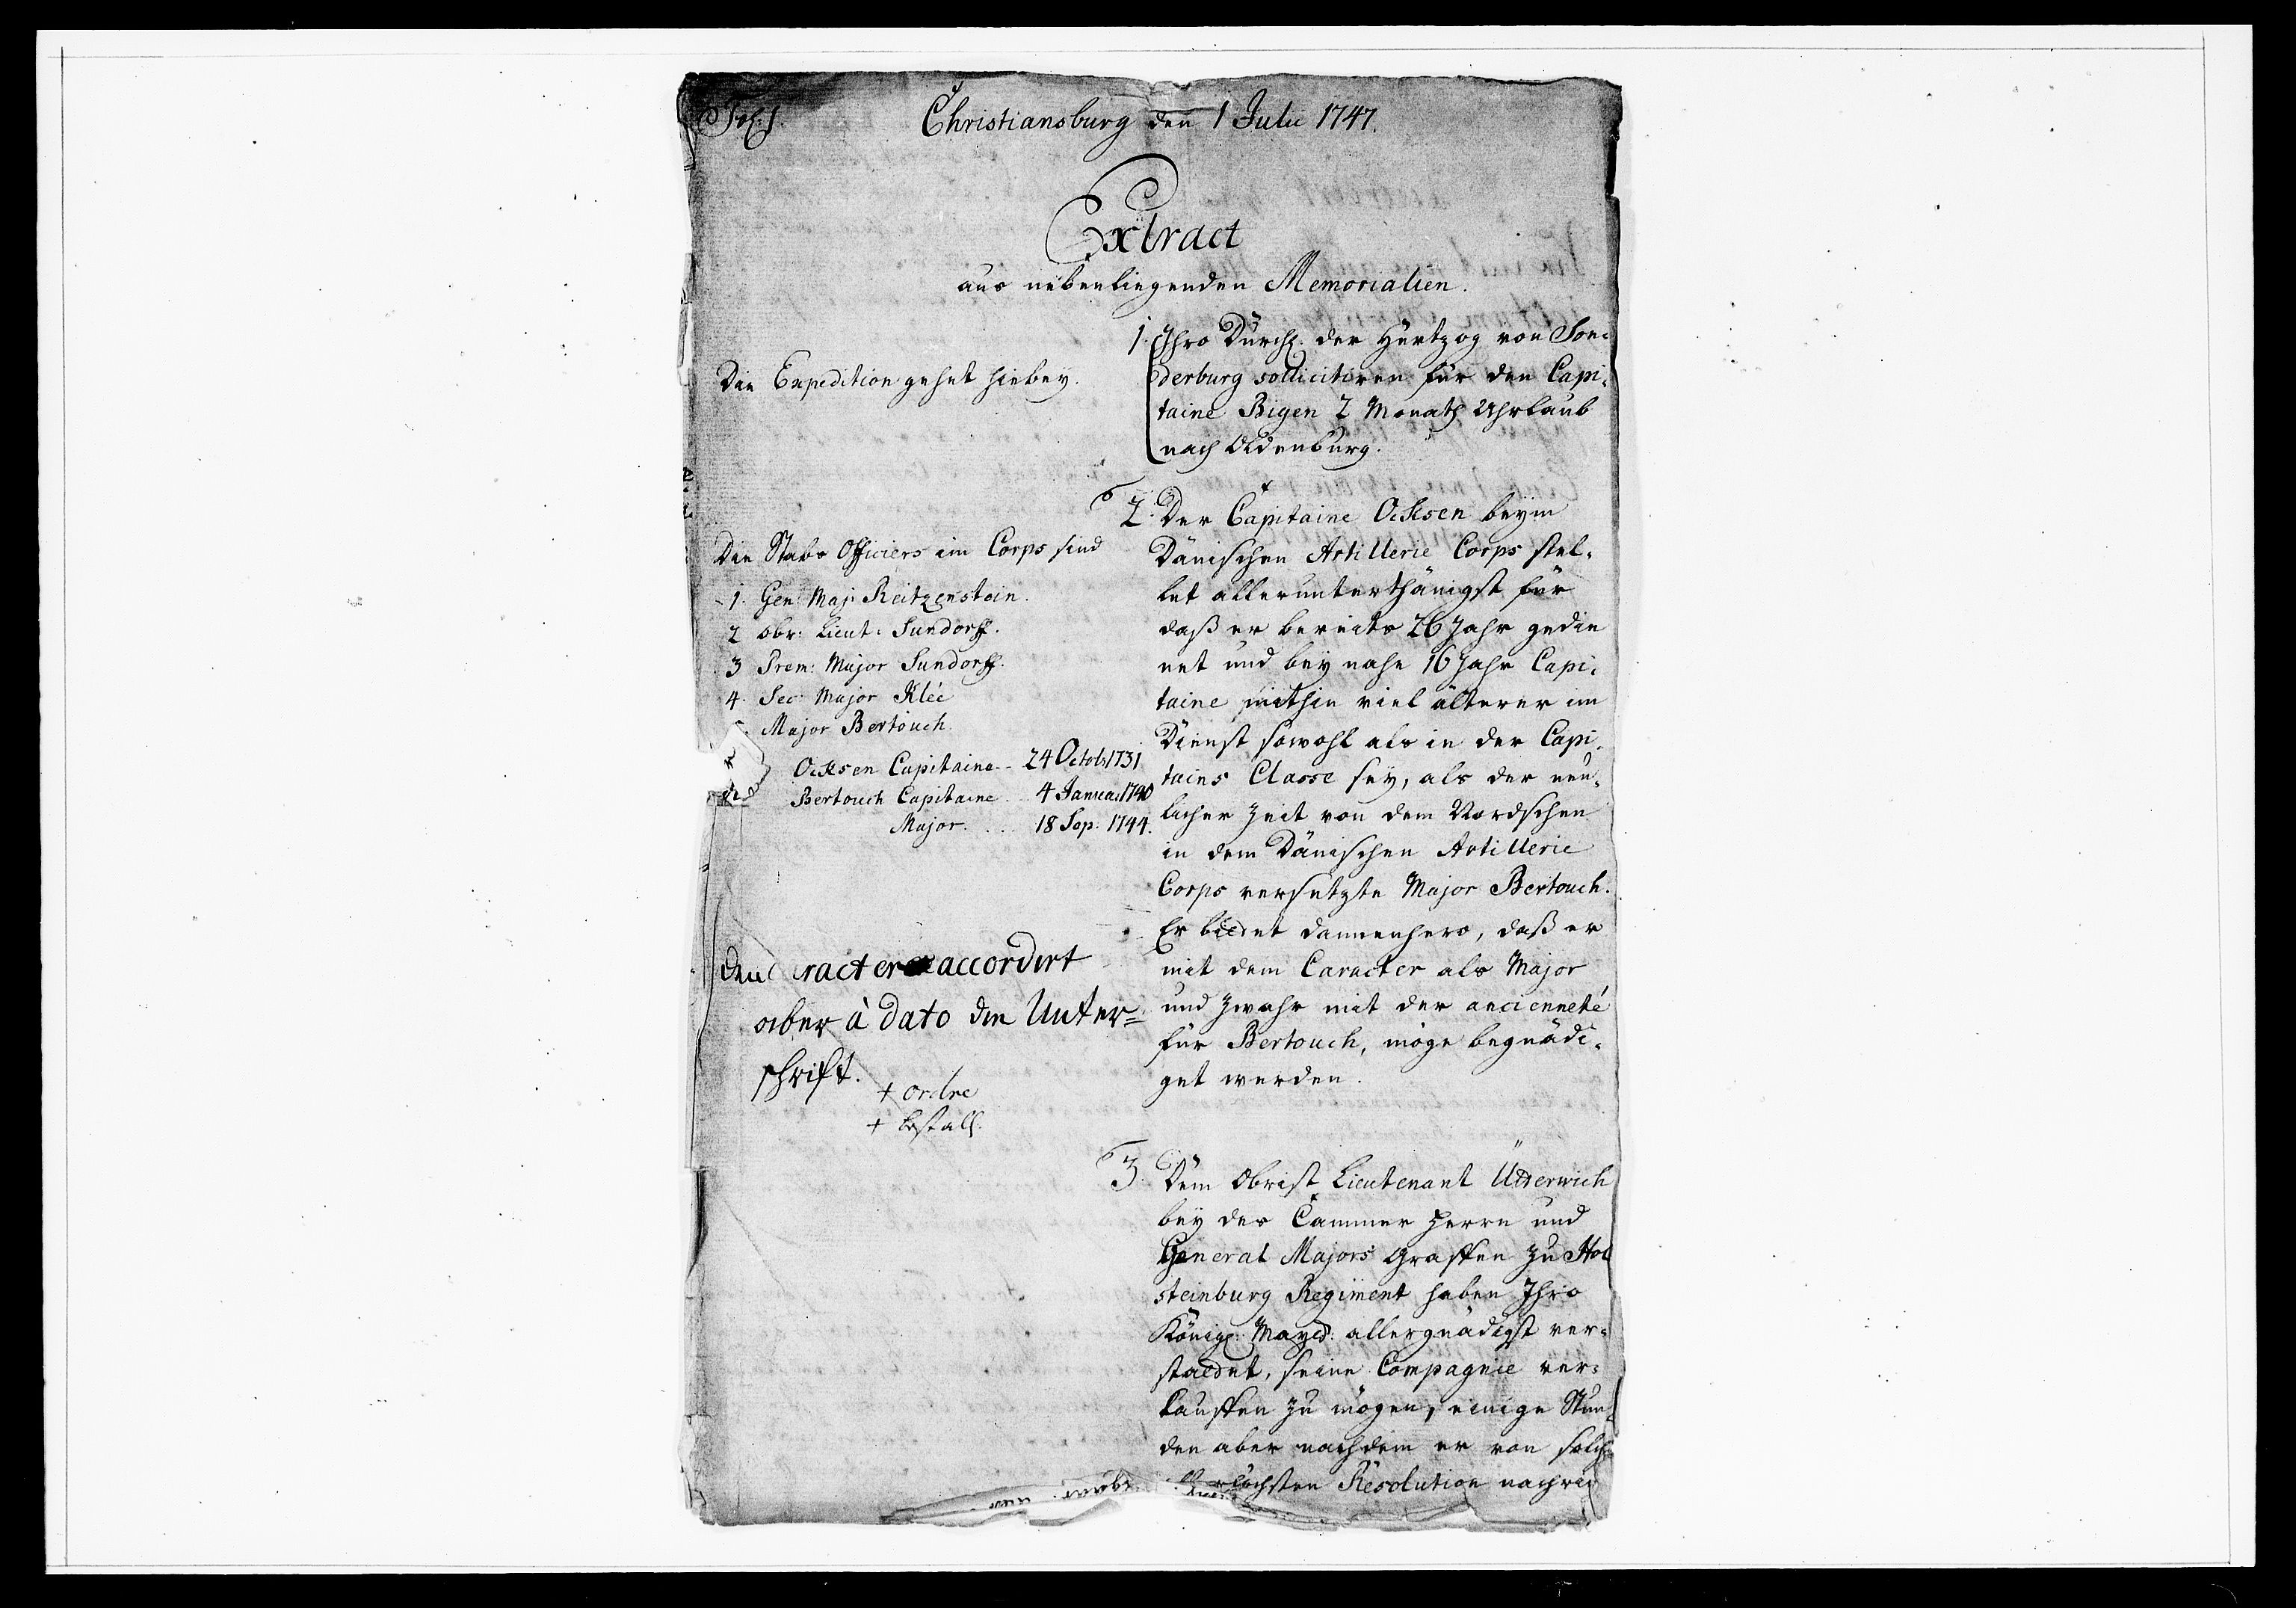 Fol: 1.
Christiansburg den 1 Julii 1747.
Extract
aus nebenliegenden Memorialien.
Die Expedition gehet hiebey.
1. Ihro Durchl. der Hertzog von Son-
derburg sollicitiren für den Capi-
taine Bigen 2 Monath Uhrlaub
nach Oldenburg.
Die Stabs Officiers im Corps sind
1. Gen: Maj: Reitzenstein.
2 Obr: Lieut: Sundorff.
3 Prem: Major Sundorff.
4. Sec: Major Klée
Major Bertouch
Ocksen Capitaine - 24 Octobr 1731
Bertouch Capitaine . . 4 Januar 1740
Major. . . . 18 Sep. 1744.
den racter accordirt
aber à dato der Unter=
schrifft.
+ ordre
+ bestall.
2. Der Capitaine Ocksen beym
Dänischen Artillerie Corps stel-
let allerunterthänigst für
daß er bereits 26 Jahr gedie
net und bey nahe 16 Jahr Capi-
taine mithin viel älterer im
Dienst sowohl als in der Capi-
tains Classe sey, als der neu-
licher Zeit von dem Nordschen
in dem Dänischen Artillerie
Corps versetzte Major Bertouch.
Er biedet dannenhero, daß er
mit dem Caracter als Major
und zwahr mit der ancienneté
für Bertouch, möge begnädi-
get werden.
3. Dem Obrist Lieutenant Ütterwich
bey des Cammer Herrn und
General Majors Graffen zu Hol
steinburg Regiment haben Ihro
Königl: Mayed: allergnädigst ver-
staedet, seine Compagnie ver-
kauffen zu mögen, einige Stun
den aber nachdem er von solch
höchsten Resolution nachric